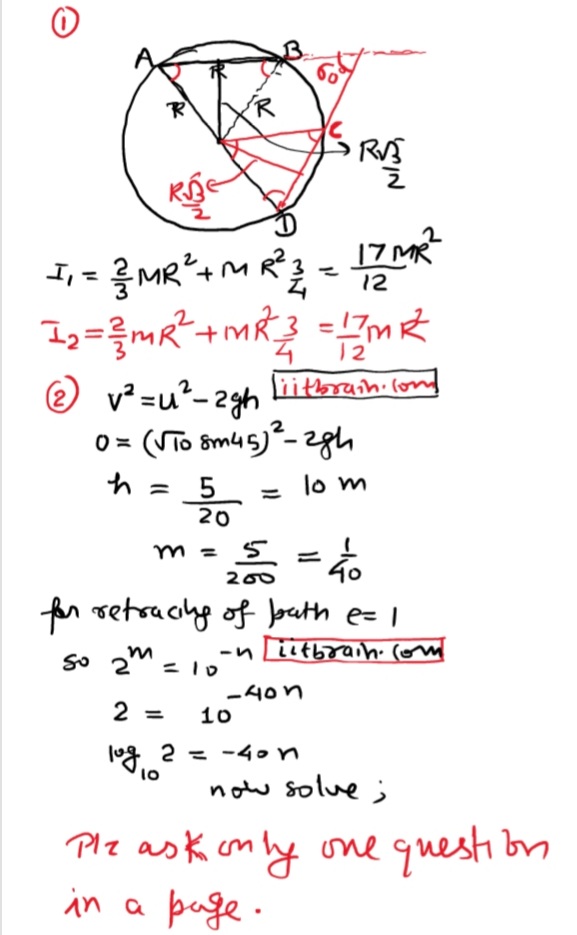 ①
A B
R
R R
60°
C
R√3/2
R√3/2
D
I₁ = 2/3 MR² + M R² 3/4 = 17MR²/12
I₂ = 2/3 mR² + mR² 3/4 = 17/12 mR²
② v² = u² - 2gh iitbrain.com
0 = (√10 sin45)² - 2gh
h = 5/20 = 10 m
m = 5/200 = 1/40
for retracing of path e = 1
so 2^m = 10^-n iitbrain.com
2 = 10^-40n
log₁₀ 2 = -40n
now solve ;
Plz ask only one question
in a page.